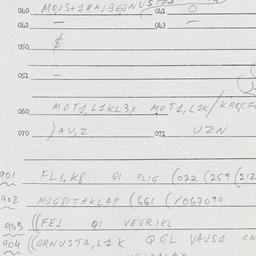 040 MOJS+1RAJBEJNUST 041 O
042 — 043 —
050 $
051 —
060 MOT1,L1KL3X MOT1,L1K/KRGCF
070 )AU,Z 071 UZN
901 FLI.K8 QI FLIG (022 (259 (212
902 M2GPITAKLAP (661 (/067090
903 ((FEJ QI VEVRIKL
904 ((ORNUSTA,L1K QGL VAJS1